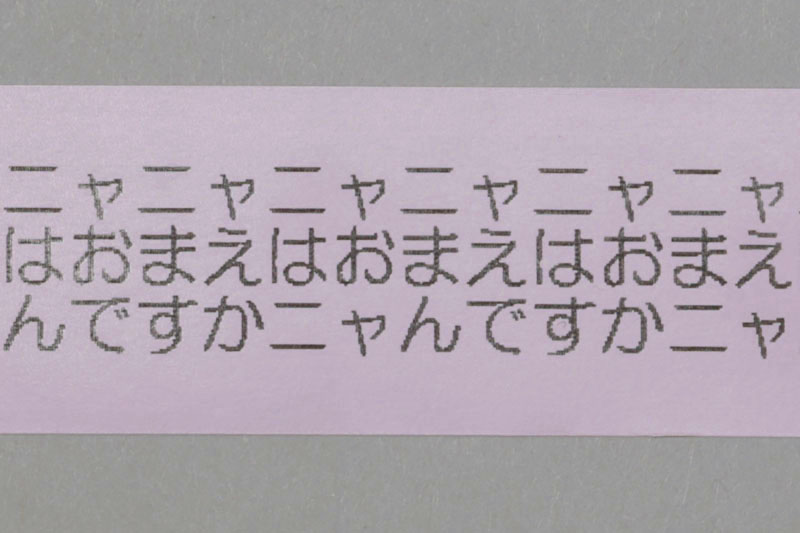 ニャニャニャニャニャニャ
はおまえはおまえはおまえ
んですかニャんですかニャ